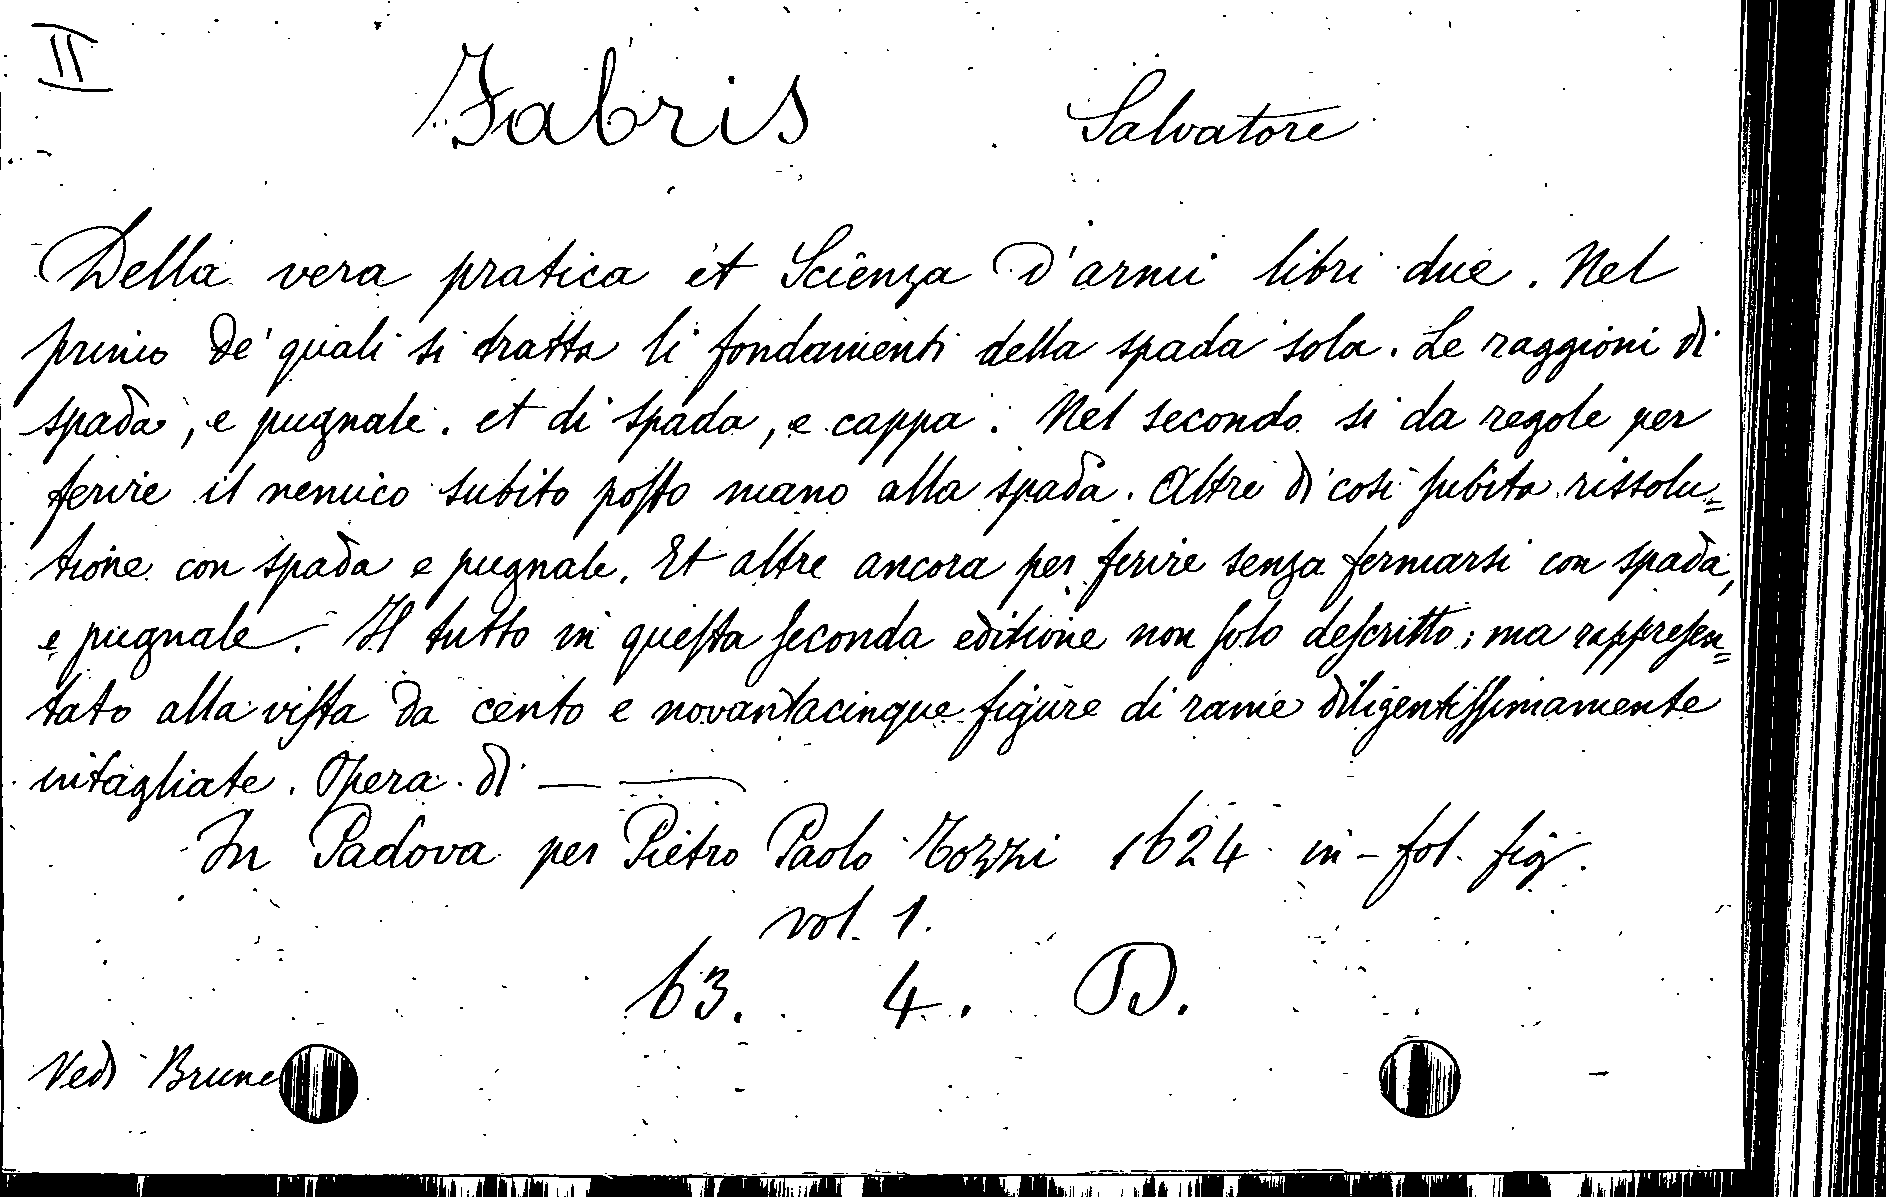 II
Fabris Salvatore
Della vera pratica et Scienza d'armi libri due. Nel
primo de' quali si tratta li fondamenti della spada sola. Le raggioni di
spada, e pugnale. et di spada, e cappa. Nel secondo si da regole per
ferire il nemico subito poſto mano alla spada. Altre di cosi ſubita rissolu=
tione con spada e pugnale. Et altre ancora per ferire senza fermarsi con spada,
e pugnale. Il tutto in queſta ſeconda editione non ſolo deſcritto; ma rappreſen=
tato alla viſta da cento e novantacinque figure di rame diligentiſſimamente
intagliate. Opera di — —
In Padova per Pietro Paolo Tozzi 1624 in-fol. fig.
vol. 1.
63. 4. D.
Vedi Brune